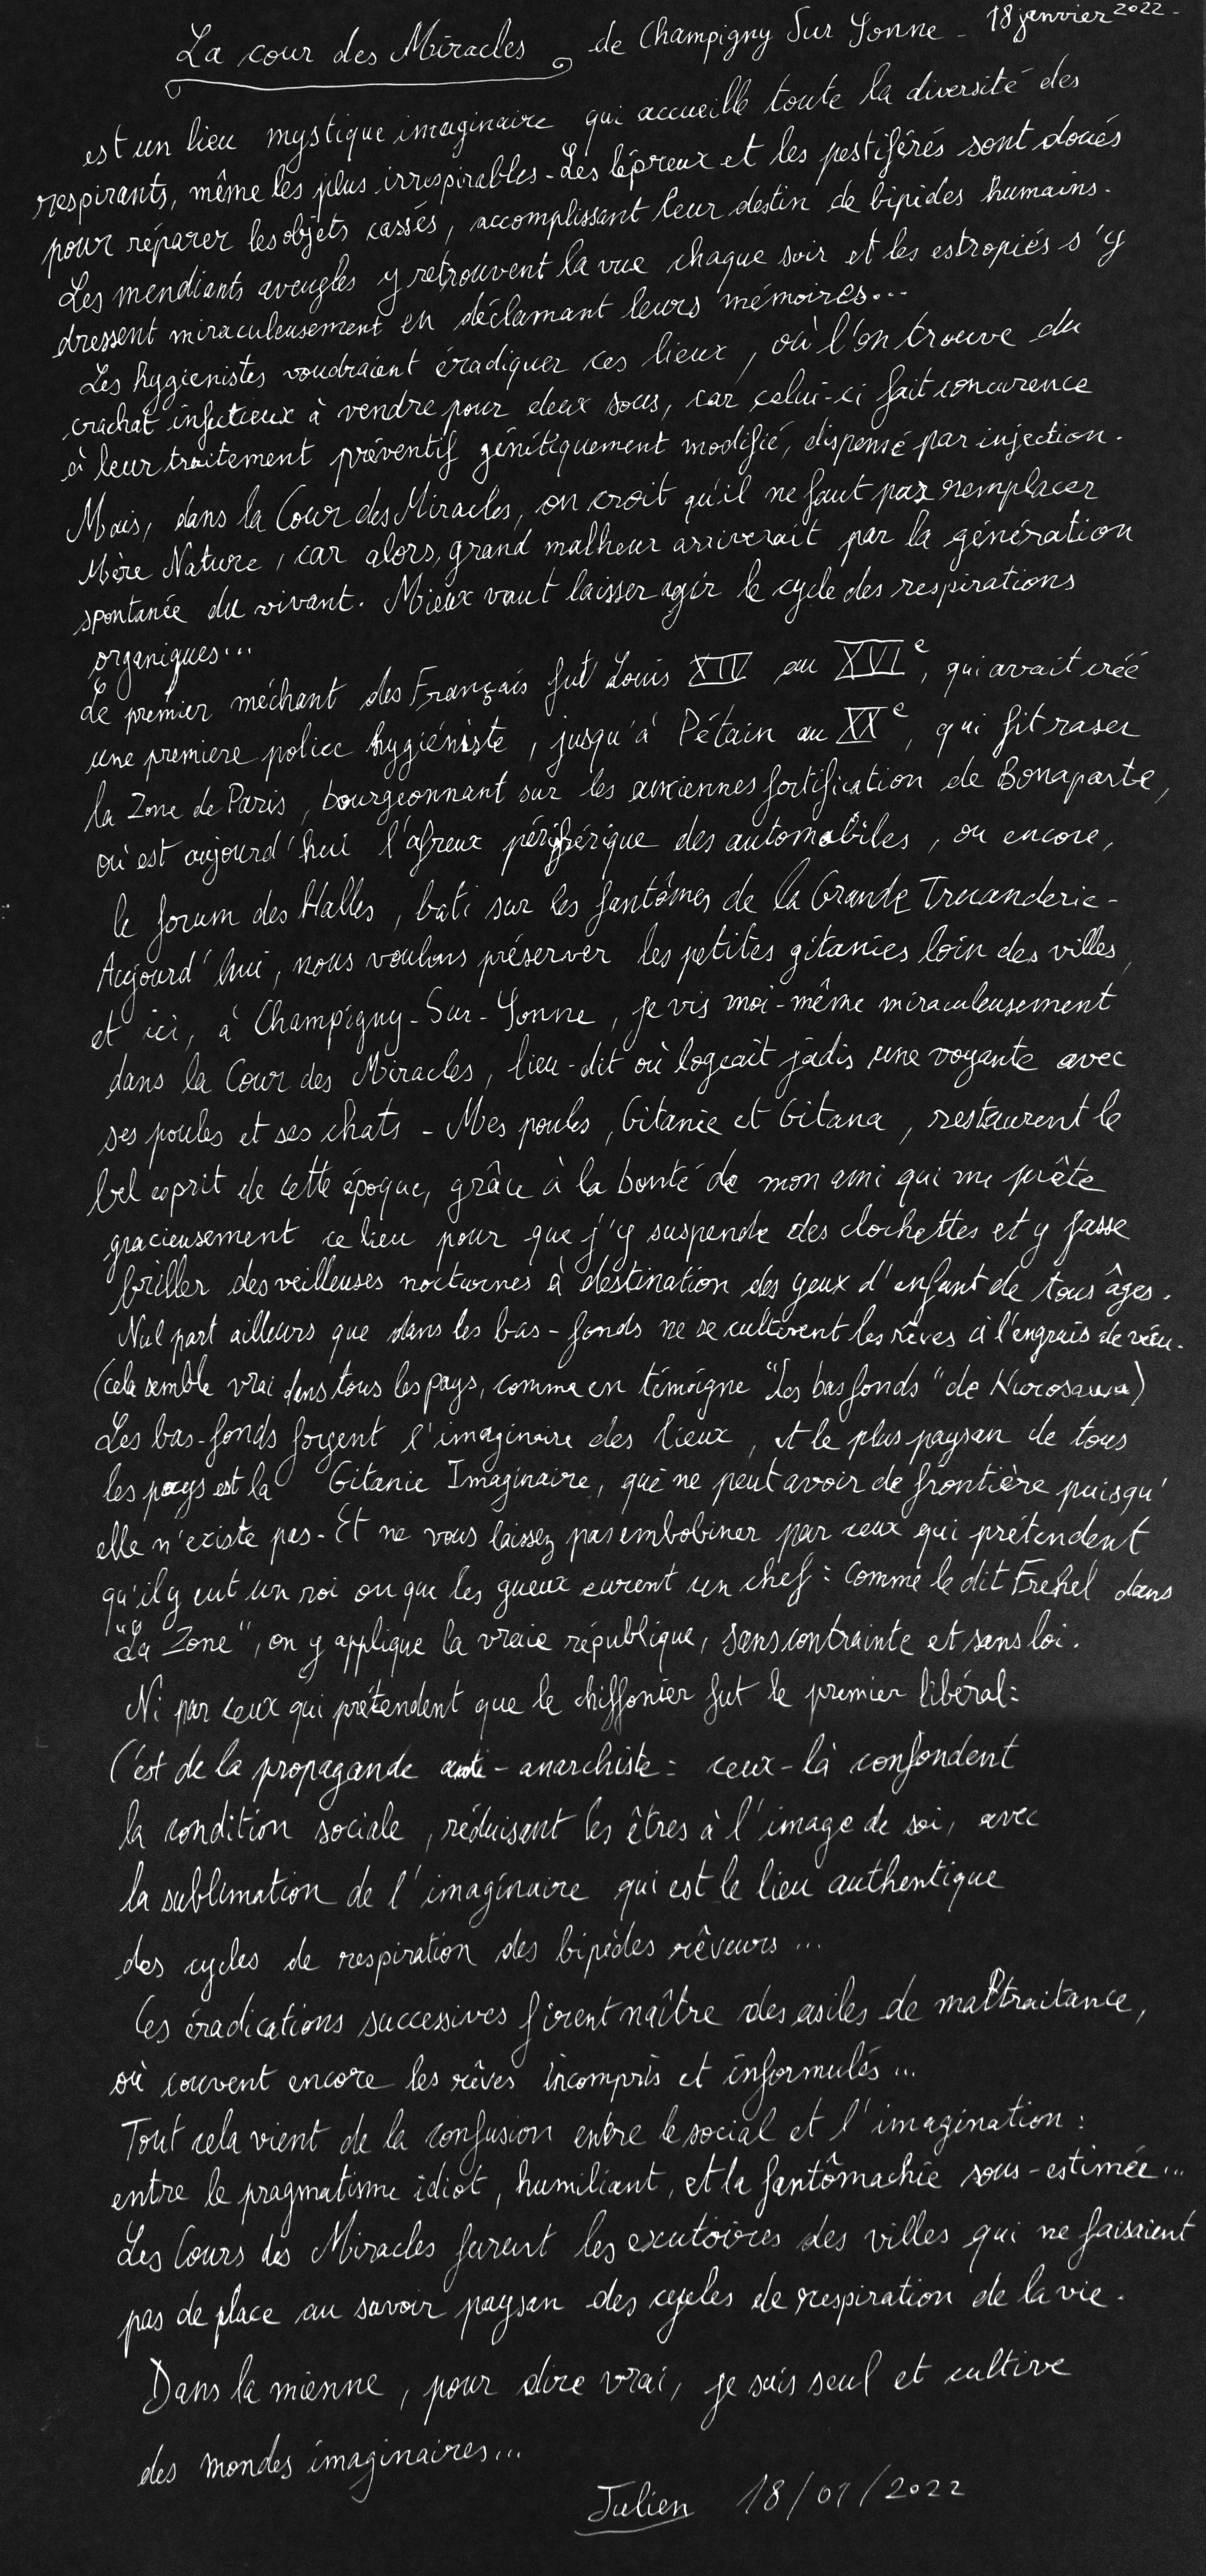 La cour des Miracles de Champigny Sur Yonne - 18 janvier 2022 -
est un lieu mystique imaginaire qui accueille toute la diversité des
respirants, même les plus irrespirables - Les lépreux et les pestiférés sont doués
pour réparer les objets cassés, accomplissant leur destin de bipèdes humains.
Les mendiants aveugles y retrouvent la vue chaque soir et les estropiés s'y
dressent miraculeusement en déclamant leurs mémoires...
Les hygienistes voudraient éradiquer ces lieux, où l'on trouve du
crachat infectieux à vendre pour deux sous, car celui-ci fait concurence
à leur traitement préventif génétiquement modifié, dispensé par injection.
Mais, dans la Cour des Miracles, on croit qu'il ne faut pas remplacer
Mère Nature, car alors, grand malheur arriverait par la génération
spontanée du vivant. Mieux vaut laisser agir le cycle des respirations
organiques...
Le premier méchant des Français fut Louis XIV au XVIe, qui avait créé
une premiere police hygiéniste, jusqu'à Pétain au XXe, qui fit raser
la Zone de Paris, bourgeonnant sur les anciennes fortification de Bonaparte,
où est aujourd'hui l'afreux périphérique des automobiles, ou encore,
le forum des Halles, bati sur les fantômes de la Grande Truanderie -
Aujourd'hui, nous voulons préserver les petites gitanies loin des villes,
et ici, à Champigny-Sur-Yonne, je vis moi-même miraculeusement
dans la Cour des Miracles, lieu-dit où logeait jadis une voyante avec
ses poules et ses chats - Mes poules, Gitanie et Gitana, restaurent le
bel esprit de cette époque, grâce à la bonté de mon ami qui me prête
gracieusement ce lieu pour que j'y suspende des clochettes et y fasse
briller des veilleuses nocturnes à destination des yeux d'enfant de tous âges.
Nul part ailleurs que dans les bas-fonds ne se cultivent les rêves à l'engrais de vécu.
(cela semble vrai dans tous les pays, comme en témoigne "Les bas fonds" de Kurosawa)
Les bas-fonds forgent l'imaginaire des lieux, et le plus paysan de tous
les pays est la Gitanie Imaginaire, qui ne peut avoir de frontière puisqu'
elle n'existe pas - Et ne vous laissez pas embobiner par ceux qui prétendent
qu'il y eut un roi ou que les gueux eurent un chef : comme le dit Frehel dans
"La Zone", on y applique la vraie république, sans contrainte et sans loi.
Ni par ceux qui prétendent que le chiffonier fut le premier libéral :
C'est de la propagande anti-anarchiste : ceux-là confondent
la condition sociale, réduisant les êtres à l'image de soi, avec
la sublimation de l'imaginaire qui est le lieu authentique
des cycles de respiration des bipèdes rêveurs ...
Ces éradications successives firent naître des asiles de maltraitance,
où couvent encore les rêves incompris et informulés ...
Tout cela vient de la confusion entre le social et l'imagination :
entre le pragmatisme idiot, humiliant, et la fantômachie sous-estimée...
Les Cours des Miracles furent les exutoires des villes qui ne faisaient
pas de place au savoir paysan des cycles de respiration de la vie.
Dans la mienne, pour dire vrai, je suis seul et cultive
des mondes imaginaires...
Julien 18/01/2022